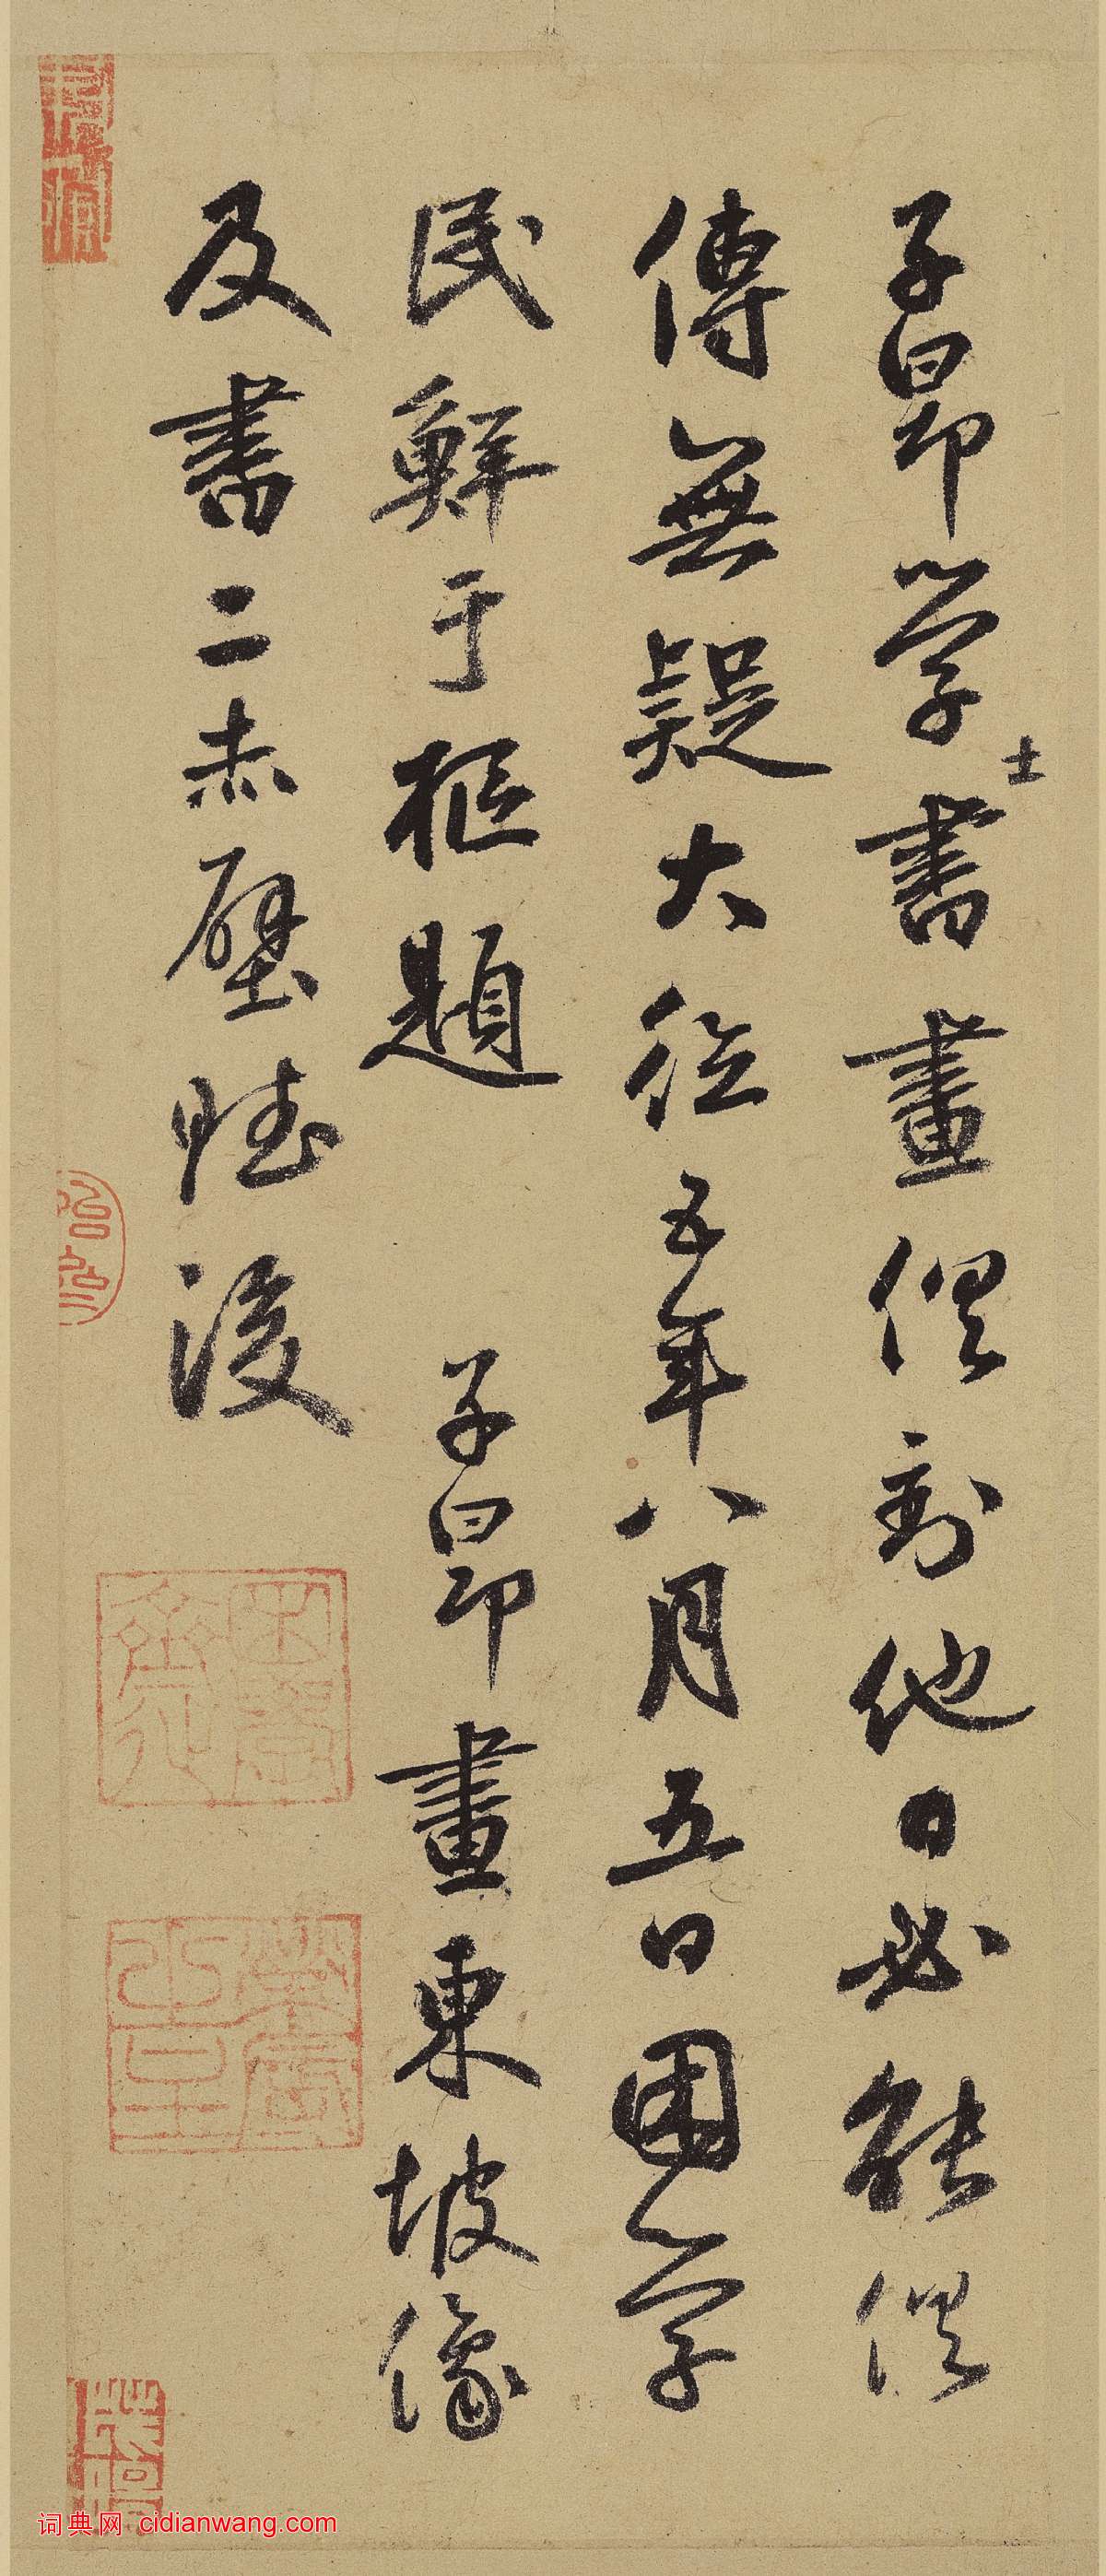 子昂學士書畫俱到他日必能俱
傳無疑大德五年八月五日困學
民鮮于樞題　子昂畫東坡像
及書二赤壁賦後
词典网 cidianwang.com